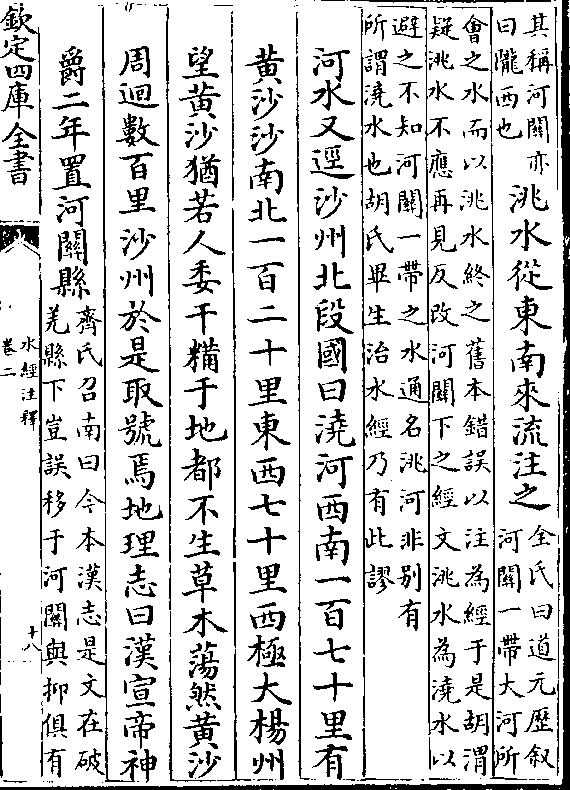 其稱河關亦
曰隴西也
洮水從東南來流注之
全氏曰道元歷叙
河關一帶大河所
會之水而以洮水終之舊本錯誤以注為經于是胡渭
疑洮水不應再見反改河關下之經文洮水為澆水以
避之不知河關一帶之水通名洮河非别有
所謂澆水也胡氏畢生治水經乃有此謬
河水又逕沙州北段國曰澆河西南一百七十里有
黄沙沙南北一百二十里東西七十里西極大楊州
望黄沙猶若人委干糒于地都不生草木蕩然黄沙
周迴數百里沙州於是取號焉地理志曰漢宣帝神
爵二年置河關縣
齊氏召南曰今本漢志是文在破
羌縣下豈誤移于河關與抑俱有
欽定四庫全書
水經注釋
卷二
十八